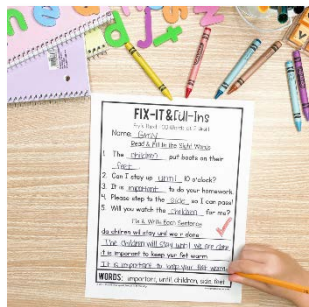 FIX-IT & Fill-Ins
Name
Read & Fill In the Sight Words
1. The children put boats on their
feet.
2. Can I stay up until 10 o'clock?
3. It is important to do your homework.
4. Please step to the side so I can pass!
5. Will you watch the children for me?
Fix & Write Each Sentence
The children will stay until we are done
it is important to keep your feet warm
It is important to keep your feet warm
WORDS: important, until, children, side, feet